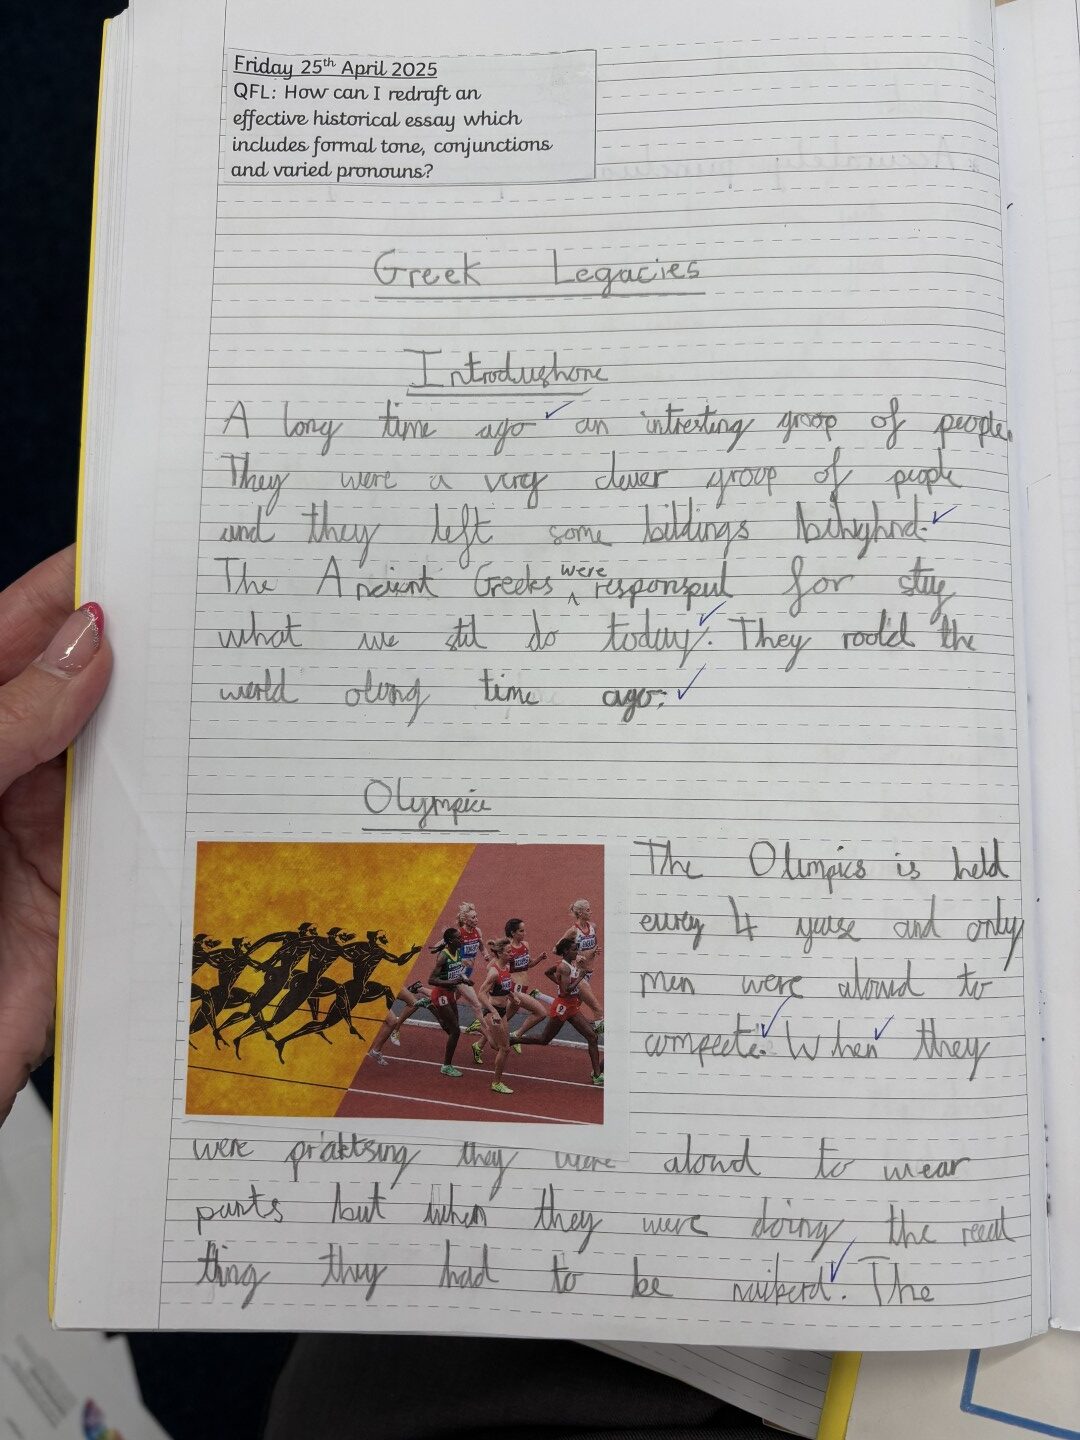 Friday 25th April 2025
QFL: How can I redraft an
effective historical essay which
includes formal tone, conjunctions
and varied pronouns?
Greek Legacies
Introdushone
A long time ago an intresting groop of people.
They were a very clever groop of people
and they left some bildings bihighnd.
The Ancient Greeks were responspul for stuf
what we stil do today. They roold the
werld olong time ago.
Olympics
The Olimpics is held
every 4 yerse and only
men were aloud to
compeete. When they
were praktsing they were aloud to wear
pants but when they were doing the reeal
thing they had to be naikerd. The